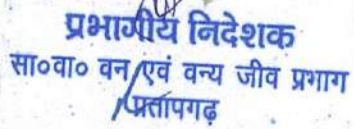 प्रभागीय निदेशक
सा०वा० वन एवं वन्य जीव प्रभाग
प्रतापगढ़